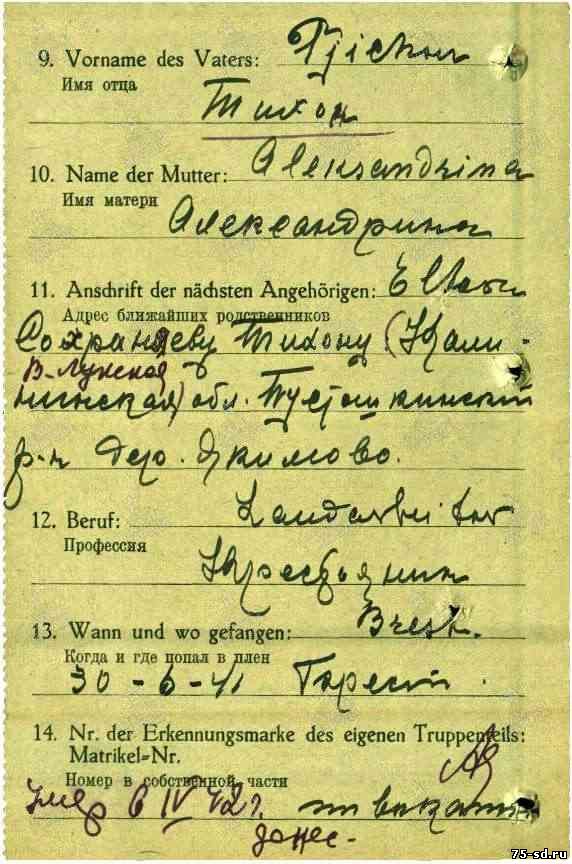 9. Vorname des Vaters: Tjichon
Имя отца
Тихон
10. Name der Mutter: Aleksandrina
Имя матери
Александрина
11. Anschrift der nächsten Angehörigen: Eltern
Адрес ближайших родственников
Тихону (Кали-
В-Лукская
нинская) обл. Пустошкинский
р-н дер. Якимово.
12. Beruf: Landarbeiter
Профессия
Крестьянин
13. Wann und wo gefangen: Brest.
Когда и где попал в плен
30-6-41 Брест.
14. Nr. der Erkennungsmarke des eigenen Truppenteils:
Matrikel-Nr.
Номер в собственной части
Умер 6 IV 42г.
донес-
75-sd.ru